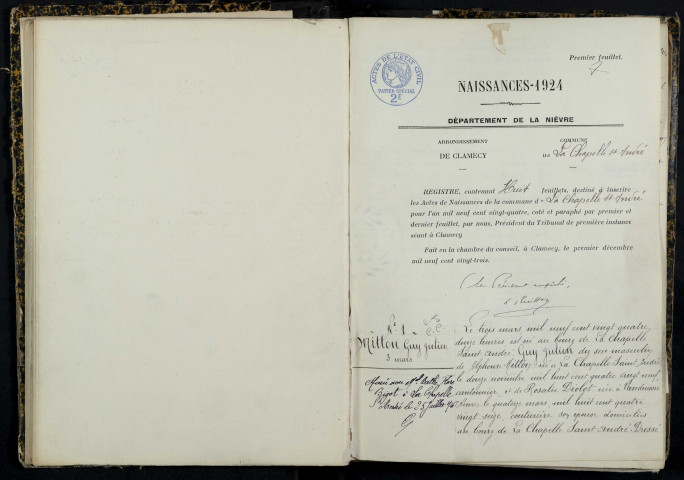 Premier feuillet.
ACTES DE L'ETAT CIVIL
PAPIER SPECIAL
2F
NAISSANCES-1924
DÉPARTEMENT DE LA NIÈVRE
ARRONDISSEMENT
DE CLAMECY
COMMUNE
DE La Chapelle St André
REGISTRE, contenant Huit feuillets, destiné à inscrire
les Actes de Naissances de la commune de La Chapelle St André
pour l'an mil neuf cent vingt-quatre, coté et paraphé par premier et
dernier feuillet, par nous, Président du Tribunal de première instance
séant à Clamecy
Fait en la chambre du conseil, à Clamecy, le premier décembre
mil neuf cent vingt-trois.
No 1
Millon Guy Julien
3 mars
Le trois mars mil neuf cent vingt quatre
heures est né au bourg de La Chapelle
Saint André Guy Julien du sexe masculin
de Alphonse Millon né à La Chapelle Saint André
le douze novembre mil huit cent quatre vingt neuf
cantonnier, et de Rosalie née à
le quatorze mars mil huit cent quatre
vingt seize, couturière son épouse domiciliés
au bourg de La Chapelle Saint André Dressé
Marié avec
à La Chapelle
St André le 25 Juillet